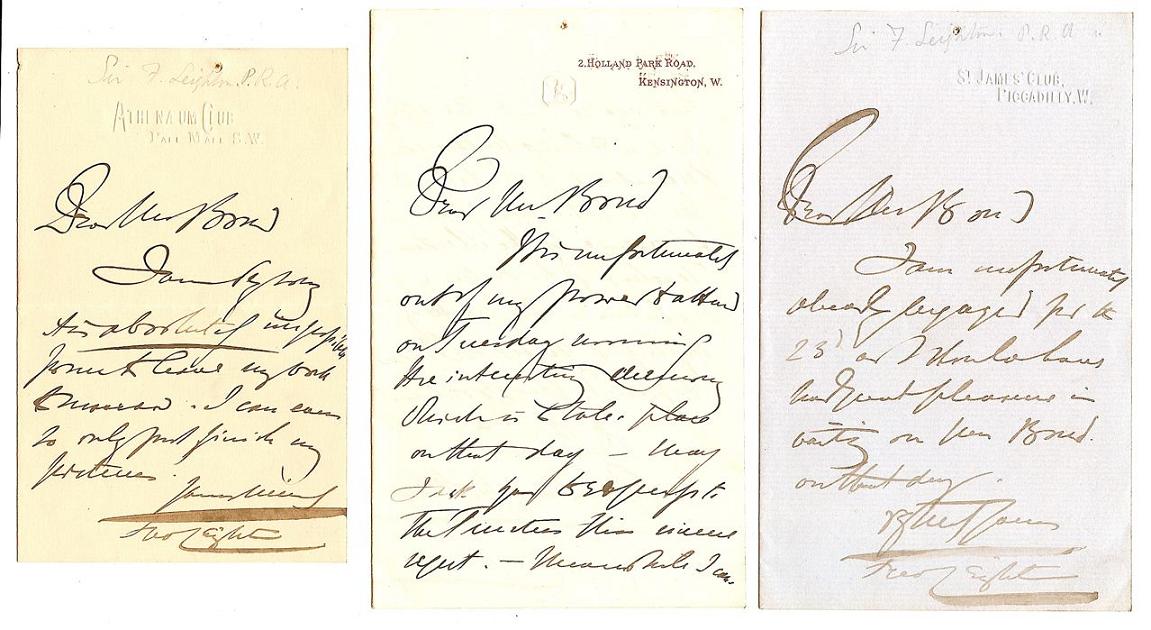 Sir F. Leighton. P.R.A.
ATHENÆUM CLUB
PALL MALL S.W.
Dear Mr Bond
I am
it is absolutely impossible
for me to leave my work
tomorrow. I can even
so only just finish my
pictures.
Yours sincerely
Fred Leighton
2. HOLLAND PARK ROAD,
KENSINGTON, W.
Dear Mr. Bond
It is unfortunately
out of my power to attend
on Tuesday morning
the interesting ceremony
which is to take place
on that day — May
I ask you to express to
the Trustees this sincere
regret. — Meanwhile I am
Sir F Leighton. P.R.A
ST JAMES' CLUB,
PICCADILLY, W.
Dear Mr Bond
I am unfortunately
already engaged for the
23d or I should have
had great pleasure in
waiting on Mrs Bond.
on that day.
Yours
Fred Leighton